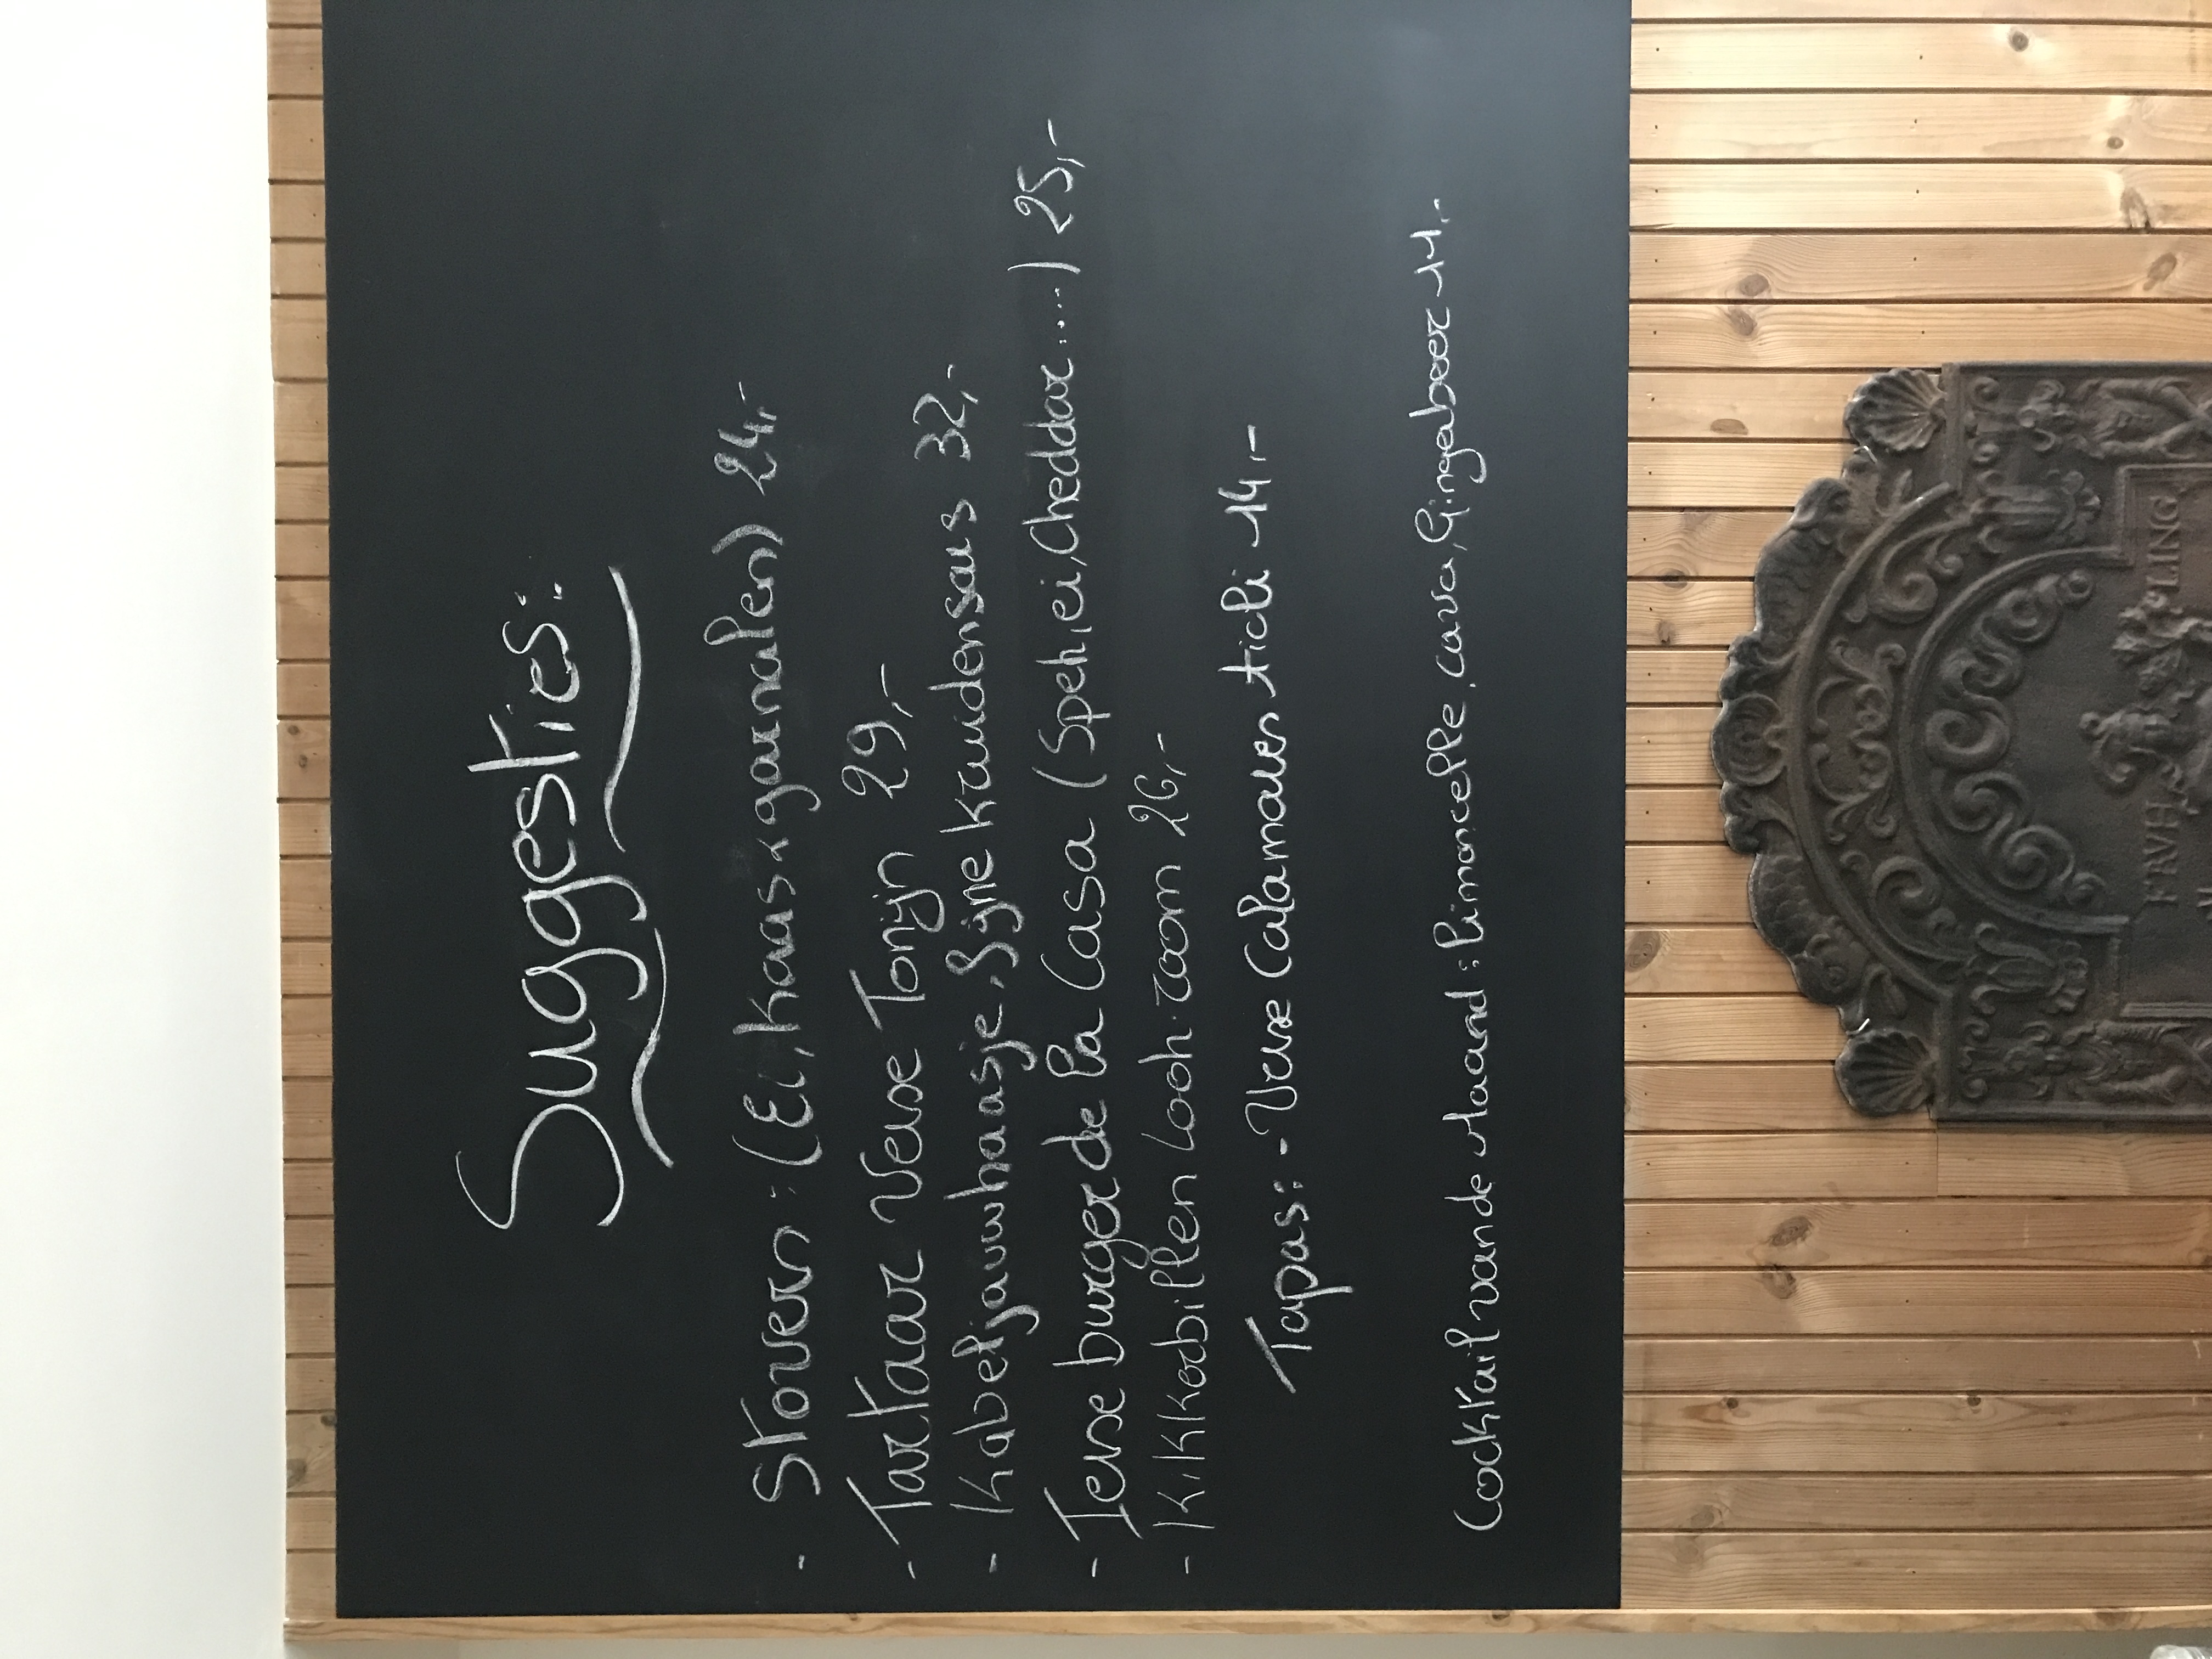 Suggesties:
- Stoverij : (Ei, Kaas & garnalen) 24,-
- Tartaar Verse Tonijn 29,-
- Kabeljauwhaasje, fijne kruidensaus 32,-
- Ierse burger de la Casa (Spek, ei, Cheddar....) 25,-
- Kikkerbillen Look-room 26,-
Tapas: - Verse Calamares ticli 14,-
Cocktail van de maand : limoncelle, cava, Gingeber 14,-
FRVH LING